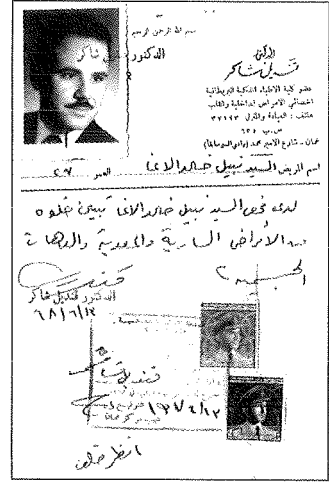 بسم الله الرحمن الرحيم
الدكتور قنديل شاكر
الدكتور
قنديل شاكر
عضو كلية الاطباء الملكية البريطانية
اخصائي الامراض الداخلية والقلب
هاتف : العيادة والمنزل ٣٢١٩٣
ص.ب ٦٢٥
عمان - شارع الامير محمد (وادي السير سابقا)
اسم المريض السيد نبيل خالد الاغا العمر ٢٧
لدى فحص السيد نبيل خالد الاغا تبين خلوه
من الأمراض السارية والمعدية والعاهات
الجسمية
قنديل
الدكتور قنديل شاكر
قنديل شاكر
انظر خلفه